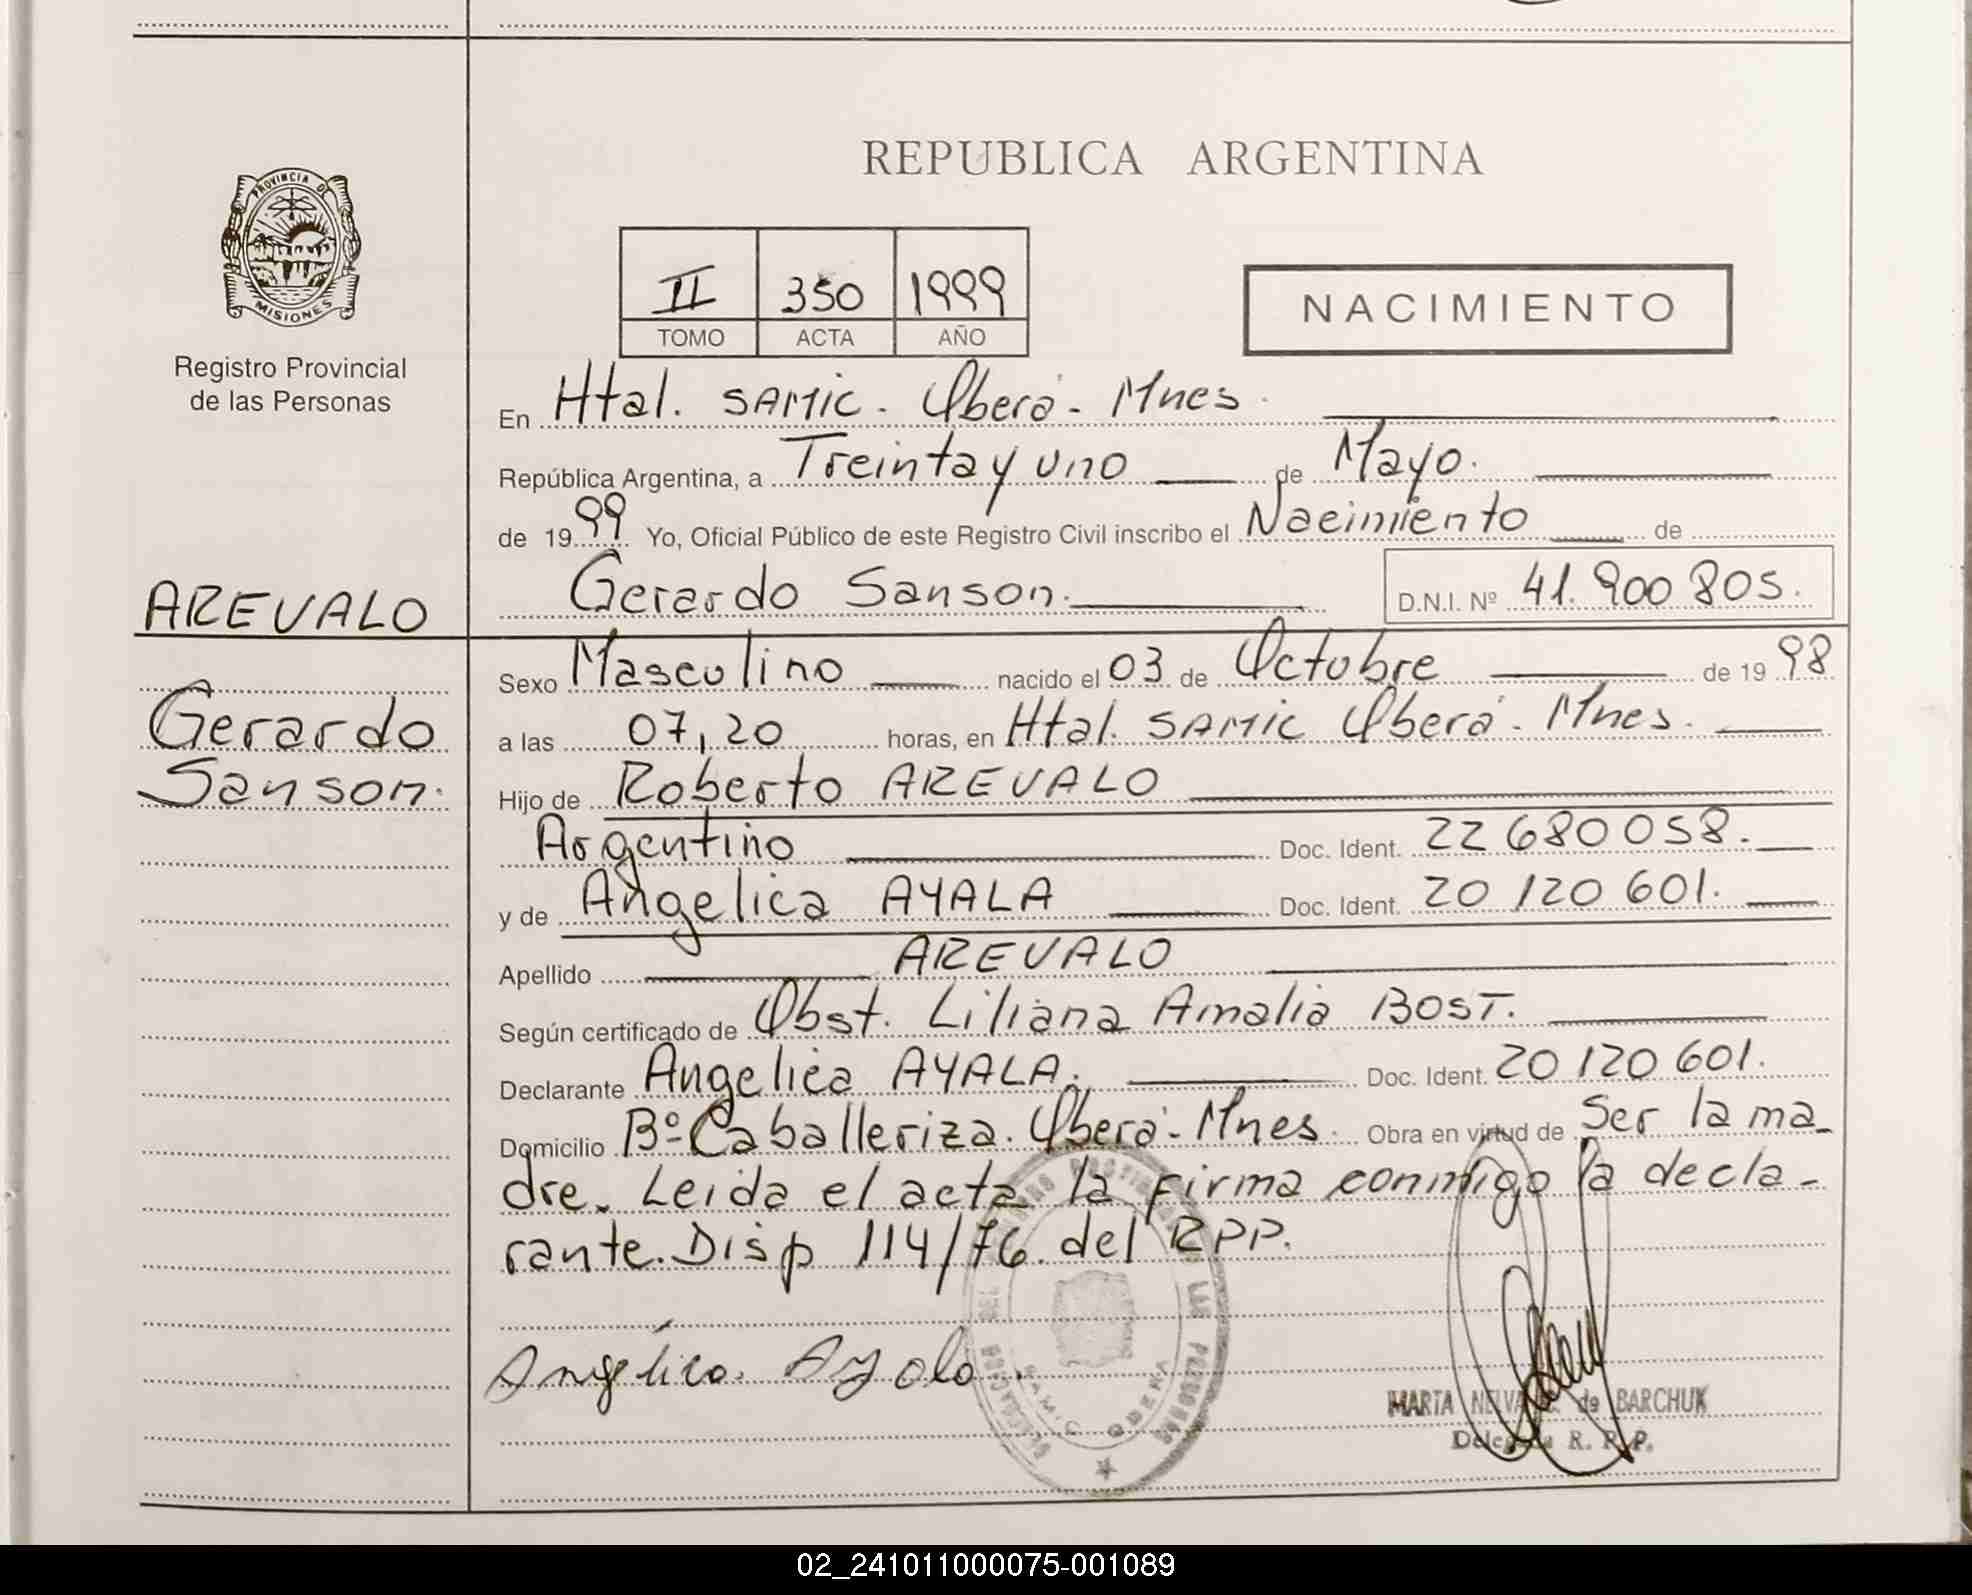 REPUBLICA ARGENTINA
PROVINCIA DE
MISIONES
Registro Provincial
de las Personas
II 350 1999
TOMO ACTA AÑO
NACIMIENTO
En Htal. SAMIC. Oberá. Mnes.
República Argentina, a Treinta y uno de Mayo.
de 1999 Yo, Oficial Público de este Registro Civil inscribo el Nacimiento de
Gerardo Sanson. D.N.I. Nº 41.900 805.
AREVALO
Gerardo
Sanson.
Sexo Masculino nacido el 03 de Octubre de 1998
a las 07,20 horas, en Htal. SAMIC Oberá. Mnes.
Hijo de Roberto AREVALO
Argentino Doc. Ident. 22 680 058.
y de Angelica AYALA Doc. Ident. 20 120 601.
Apellido AREVALO
Según certificado de Obst. Liliana Amalia BOST.
Declarante Angelica AYALA. Doc. Ident. 20 120 601.
Domicilio Bº Caballeriza. Oberá. Mnes. Obra en virtud de Ser la ma_
dre. Leida el acta la firma conmigo la decla-
rante. Disp 114/76. del RPP.
Angélica. Ayala.
MARTA NELVA de BARCHUK
Delegada R. P. P.
02_241011000075-001089